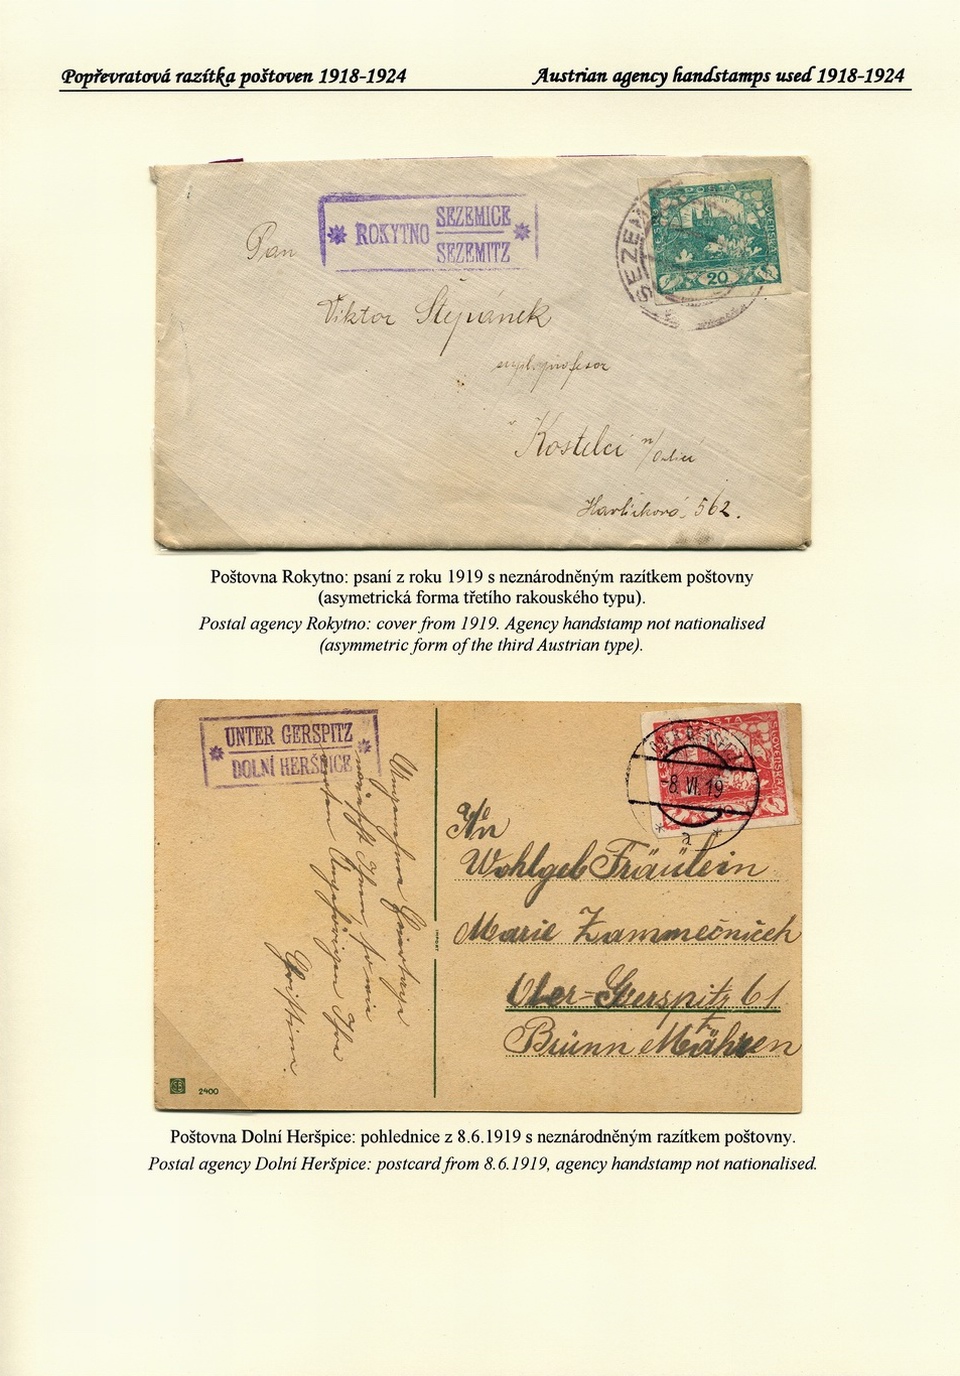 Popřevratová razítka poštoven 1918-1924
Austrian agency handstamps used 1918-1924
ROKYTNO SEZEMICE
SEZEMITZ
POSTA
SLOVENSKÁ
20
SEZEM
Pan
Viktor Štěpánek
Kostelci n/Orlicí
Havlíčkova 562.
Poštovna Rokytno: psaní z roku 1919 s neznárodněným razítkem poštovny
(asymetrická forma třetího rakouského typu).
Postal agency Rokytno: cover from 1919. Agency handstamp not nationalised
(asymmetric form of the third Austrian type).
UNTER GERSPITZ
DOLNÍ HERŠPICE
POSTA
SLOVENSKÁ
-8. VI. 19
a
An
Wohlgeb Fräulein
Marie Zammečnicek
Ober-Gerspitz 61
Brünn Mähren
Angenehme Feiertage
wünscht Ihnen, so wie
werten Angehörigen Ihre
IMPORT
2400
Poštovna Dolní Heršpice: pohlednice z 8.6.1919 s neznárodněným razítkem poštovny.
Postal agency Dolní Heršpice: postcard from 8.6.1919, agency handstamp not nationalised.